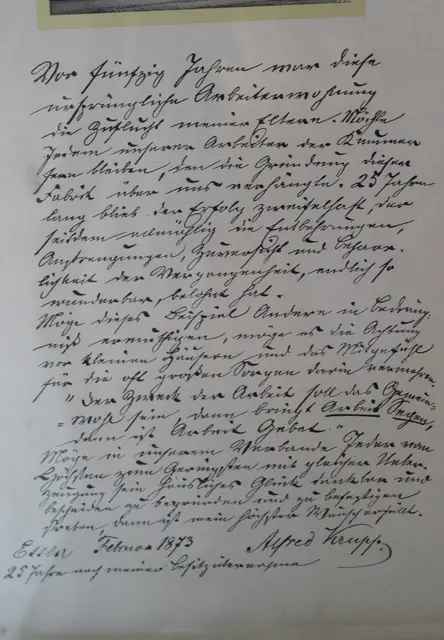 Vor fünfzig Jahren war diese
ursprüngliche Arbeiterwohnung
die Zuflucht meiner Eltern. Möchte
Jedem unserer Arbeiter der Kummer
fern bleiben, den die Gründung dieser
Fabrik über uns verhängte. 25 Jahre
lang blieb der Erfolg zweifelhaft, der
seitdem allmählig die Entbehrungen,
Anstrengungen, Zuversicht und Beharr-
lichkeit der Vergangenheit, endlich so
wunderbar belohnt hat.
Möge dieses Beispiel Andere in Bedräng-
niß ermuthigen, möge es die Achtung
vor kleinen Häusern und das Mitgefühl
für die oft großen Sorgen darin vermehren.
"Der Zweck der Arbeit soll das Gemein-
=wohl sein, dann bringt Arbeit Segen,
dann ist Arbeit Gebet."
Möge in unserem Verbande Jeder vom
Höchsten zum Geringsten mit gleicher Ueber-
zeugung sein häusliches Glück dankbar und
bescheiden zu begründen und zu befestigen
streben, dann ist mein höchster Wunsch erfüllt.
Essen Februar 1873 Alfred Krupp.
25 Jahre nach meiner Besitzübernahme